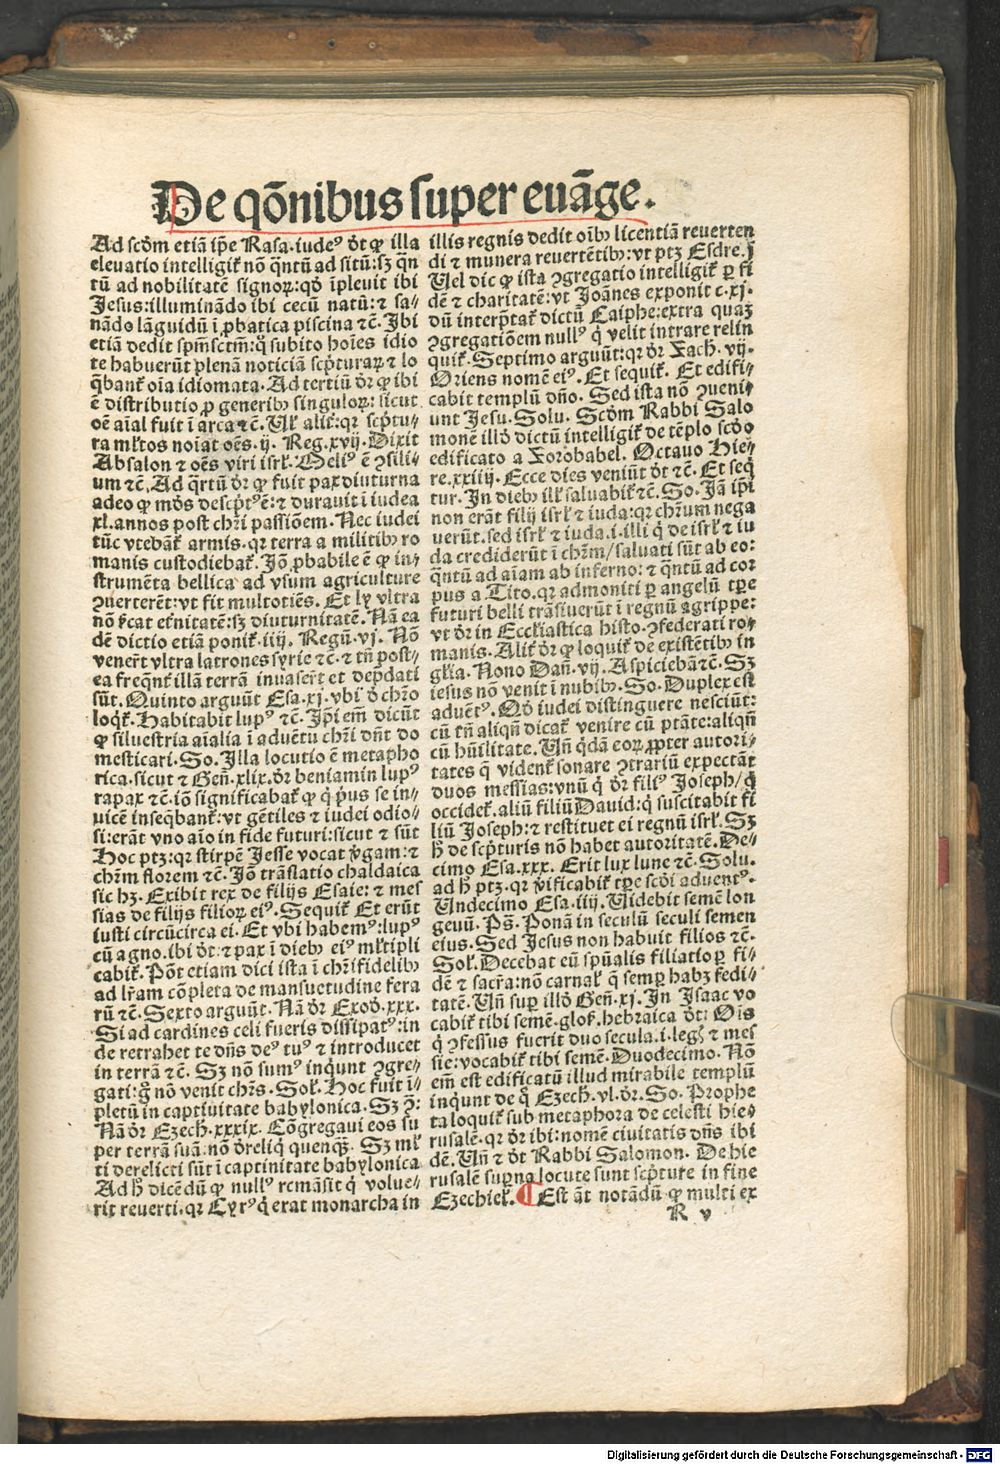 De qōnibus super euāge.
Ad scđm etiā ip̄e Rasa.iudeꝰ dt̄ ꝙ illa
eleuatio intelligit̄ nō q̄ntū ad sitū:sꝫ q̄n
tū ad nobilitatē signoꝝ:qđ īpleuit ibi
Jesus:illuminādo ibi cecū natū:⁊ sa⸗
nādo lāguidū ī ꝓbatica piscina ⁊c̄. Ibi
etiā dedit sp̄m̄sctm̄:q̄ subito hoīes idio
te habuerūt plenā noticiā sc̄pturaꝝ ⁊ lo
q̄bant̄ oīa idiomata. Ad tertiū dr̄ ꝙ ibi
ē distributio ꝓ generibꝫ singuloꝝ: sicut
oē aīal fuit ī arca ⁊c̄. Ul̄ alit̄:qꝛ sc̄ptu⸗
ra ml̄tos noīat oēs.ij. Reg.xvij. Dixit
Absalon ⁊ oēs viri isrl̄. Meliꝰ ē ꝯsili⸗
um ⁊c̄. Ad q̄rtū dr̄ ꝙ fuit pax diuturna
adeo ꝙ mōs desc̄ptꝰ ē:⁊ durauit ī iudea
xl.annos post chr̄i passiōem. Nec iudei
tūc vtebāt̄ armis.qꝛ terra a militibꝫ ro
manis custodiebat̄. Iō ꝓbabile ē ꝙ in⸗
strumēta bellica ad vsum agriculture
ꝯuerterēt:vt fit multotiēs. Et ly vltra
nō dicat et̄nitatē:sꝫ diuturnitatē. Nā ea
dē dictio etiā ponit̄.iiij. Regū.vj. Nō
venert̄ vltra latrones syrie ⁊c̄.⁊ tn̄ post⸗
ea freq̄nt̄ illā terrā inuasert̄ et dep̄dati
sūt. Quinto arguūt Esa.xj.vbi đ chr̄o
loqt̄. Habitabit lupꝰ ⁊c̄. Ip̄i em̄ dicūt
ꝙ siluestria aīalia ī aduētu chr̄i dn̄t do
mesticari. So. Illa locutio ē metapho
rica.sicut ⁊ Gen̄.xlix.dr̄ beniamin lupꝰ
rapax ⁊c̄.iō significabat̄ ꝙ q̄ p̄us se in⸗
uicē inseq̄bant̄:vt gētiles ⁊ iudei odio⸗
si:erāt vno aīo in fide futuri:sicut ⁊ sūt
Hoc ptꝫ:qꝛ stirpē Jesse vocat v̄gam:⁊
chr̄m florem ⁊c̄. Iō trāslatio chaldaica
sic hꝫ. Exibit rex de filijs Esaie: ⁊ mes
sias de filijs filioꝝ eiꝰ. Sequit̄ Et erūt
iusti circūcirca ei. Et vbi habemꝰ:lupꝰ
cū agno.ibi dt̄:⁊ pax ī dieb eiꝰ ml̄tipli
cabit̄. Pōt etiam dici ista ī chr̄ifidelibꝫ
ad lr̄am cōpleta de mansuetudine fera
rū ⁊c̄. Sexto arguūt. Nā dr̄ Exođ.xxx.
Si ad cardines celi fueris dissipatꝰ:in
de retrahet te dn̄s deꝰ tuꝰ ⁊ introducet
in terrā ⁊c̄. Sꝫ nō sumꝰ inq̄unt ꝯgre⸗
gati:g̊ nō venit chr̄s. Sol̄. Hoc fuit ī⸗
pletū in captiuitate babylonica. Sꝫ ꝯ:
Nā dr̄ Ezech.xxxix. Cōgregaui eos su
per terrā suā:nō dr̄eliq̄ quenqꝫ. Sꝫ ml̄
ti derelicti sūt ī captinitate babylonica
Ad h̄ dicēdū ꝙ nullꝰ remāsit q̄ volue⸗
rit reuerti.qꝛ Cyrꝰ q̄ erat monarcha in
illis regnis dedit oībꝫ licentiā reuerten
di ⁊ munera reuertētibꝫ:vt ptꝫ Esdre.j
Uel dic ꝙ ista ꝯgregatio intelligit̄ ꝑ fi
dē ⁊ charitatē:vt Joānes exponit c.xj.
dū interp̄tat̄ dictū Caiphe:extra quaꝫ
ꝯgregatiōem nullꝰ q̄ velit intrare relin
quit̄. Septimo arguūt:qꝛ dr̄ Zach.vij.
Oriens nomē eiꝰ. Et sequit̄. Et edifi⸗
cabit templū dn̄o. Sed ista nō ꝯueni⸗
unt Jesu. Solu. Scđm Rabbi Salo
monē illđ dictū intelligit̄ de tēplo scđo
edificato a Zorobabel. Octauo Hie⸗
re.xxiij. Ecce dies veniūt dt̄ ⁊c̄. Et seq̄
tur. In dieb ill̄ saluabit̄ ⁊c̄. So. Jā ip̄i
non erāt filij isrl̄ ⁊ iuda:qꝛ chr̄um nega
uerūt.sed isrl̄ ⁊ iuda.i.illi q̄ de isrl̄ ⁊ iu
da crediderūt ī chr̄m/saluati sūt ab eo:
q̄ntū ad aīam ab inferno:⁊ q̄ntū ad cor
pus a Tito.qꝛ admoniti ꝑ angelū tꝑe
futuri belli trāsiuerūt ī regnū agrippe:
vt dr̄ in Eccl̄iastica histo.ꝯfederati ro⸗
manis. Alit̄ dr̄ ꝙ loquit̄ de existētibꝫ in
gl̄ia. Nono Dan̄.vij. Aspiciebā ⁊c̄. Sꝫ
iesus nō venit ī nubibꝫ. So. Duplex est
aduētꝰ. Qđ iudei distinguere nesciūt:
cū tn̄ aliqn̄ dicat̄ venire cū ptāte:aliqn̄
cū hūilitate. Un̄ q̄dā eoꝝ ꝓpter autori⸗
tates q̄ vident̄ sonare ꝯtrariū expectāt
duos messias:vnū q̄ dr̄ filiꝰ Joseph/q̄
occidet̄.aliū filiū Dauid:q̄ suscitabit fi
liū Joseph:⁊ restituet ei regnū isrl̄. Sꝫ
h̄ de scp̄turis nō habet autoritatē. De⸗
cimo Esa.xxx. Erit lux lune ⁊c̄. Solu.
ad h̄ ptꝫ.qꝛ v̄ificabit̄ tꝑe scđi aduentꝰ.
Undecimo Esa.iiij. Uidebit semē lon
geuū. Ps̄. Ponā in seculū seculi semen
eius. Sed Jesus non habuit filios ⁊c̄.
Sol̄. Decebat eū spūalis filiatio ꝑ fi⸗
dē ⁊ sacr̄a:nō carnal̄ q̄ semꝑ habꝫ fedi⸗
tatē. Un̄ suꝑ illđ Gen̄.xj. In Isaac vo
cabit̄ tibi semē.glos̄.hebraica dt̄: Oīs
q̄ ꝯfessus fuerit duo secula.i.legē ⁊ mes
sie:vocabit̄ tibi semē. Duodecimo. Nō
em̄ est edificatū illud mirabile templū
inq̄unt de q̄ Ezech.vl.dr̄. So. Prophe
ta loquit̄ sub metaphora de celesti hie⸗
rusalē.qꝛ dr̄ ibi:nomē ciuitatis dn̄s ibi
dē. Un̄ ⁊ dt̄ Rabbi Salomon. De hie
rusalē suꝑna locute sunt scp̄ture in fine
Ezechiel̄. ¶Est āt notādū ꝙ multi ex
R v
Digitalisierung gefördert durch die Deutsche Forschungsgemeinschaft - DFG